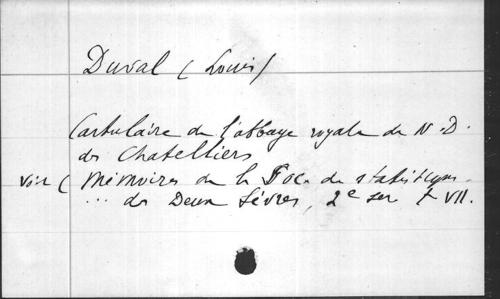 Duval (Louis)
Cartulaire de l'abbaye royale de N.-D.
des Chatelliers
voir (Mémoires de la Soc. de statistique
... des Deux Sèvres, 2e ser t VII.